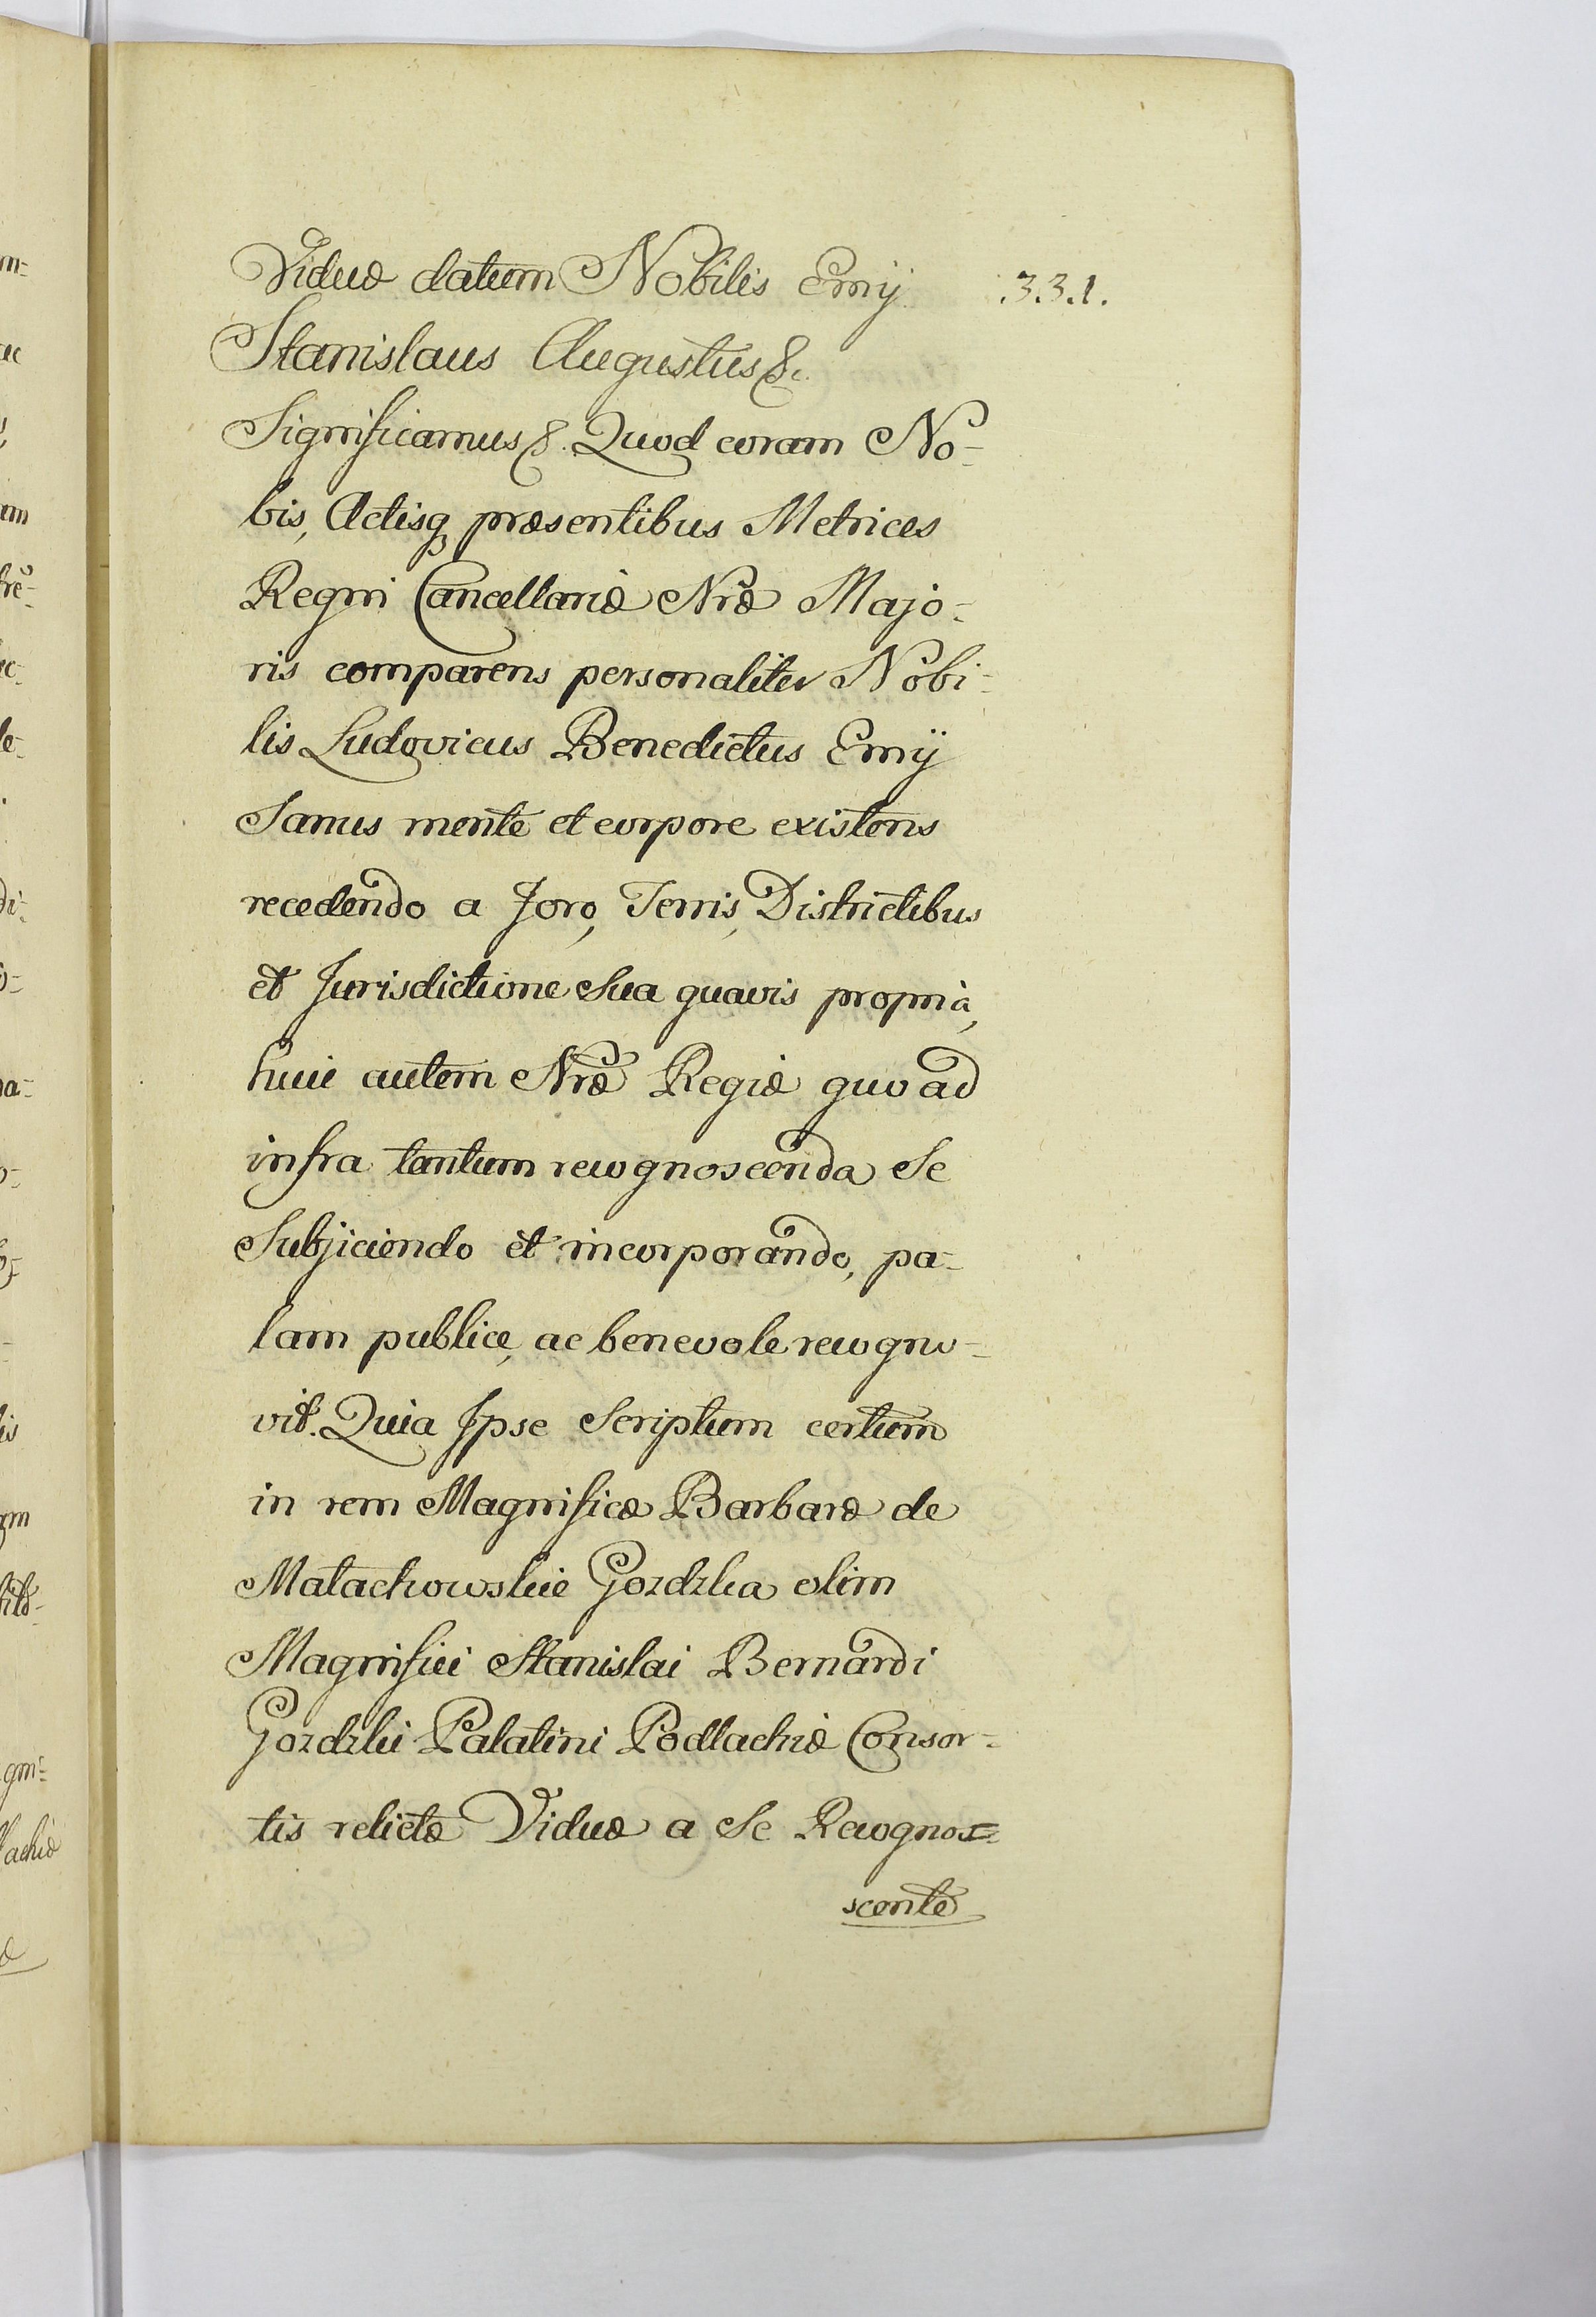 Viduæ datum Nobilis Emÿ
.3.3.1.
Stanislaus Augustus &c.
Significamus &. Quod coram No-
bis, Actisq præsentibus Metrices
Regni Cancellariæ Nræ Majo-
ris comparens personaliter Nobi-
lis Ludovicus Benedictus Emÿ
Sanus mente et corpore existens
recedendo a Foro, Terris, Districtibus
et Jurisdictione Sua quavis propria,
huic autem Nræ Regiæ quo ad
infra tantum recognoscenda Se
Subjiciendo et incorporando, pa-
lam publice, ac benevole recogno-
vit. Quia Ipse Scriptum certum
in rem Magnificæ Barbaræ de
Małachowskie Gozdzka olim
Magnifici Stanislai Bernardi
Gozdzki Palatini Podlachiæ Consor-
tis relictæ Viduæ a Se Recognos=
scente